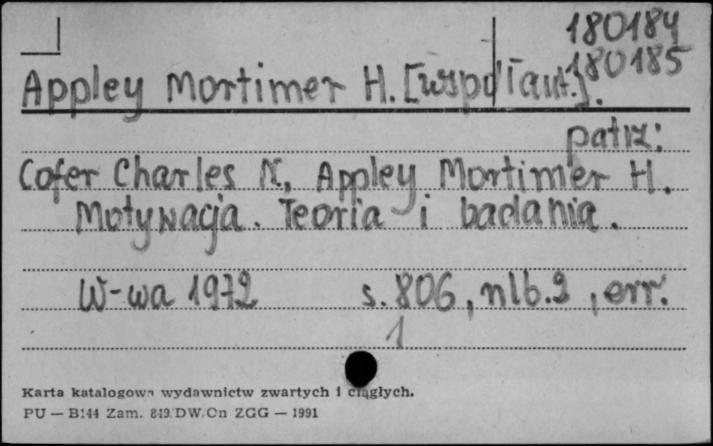 180184
180185
Appley Mortimer H. [współaut.].
patrz:
Cofer Charles N., Appley Mortimer H.
Motywacja. Teoria i badania.
W-wa 1972 s. 806, nlb. 2, err.
1
Karta katalogowa wydawnictw zwartych i ciągłych.
PU — B144 Zam. 849. DW. Cn ZGG — 1991